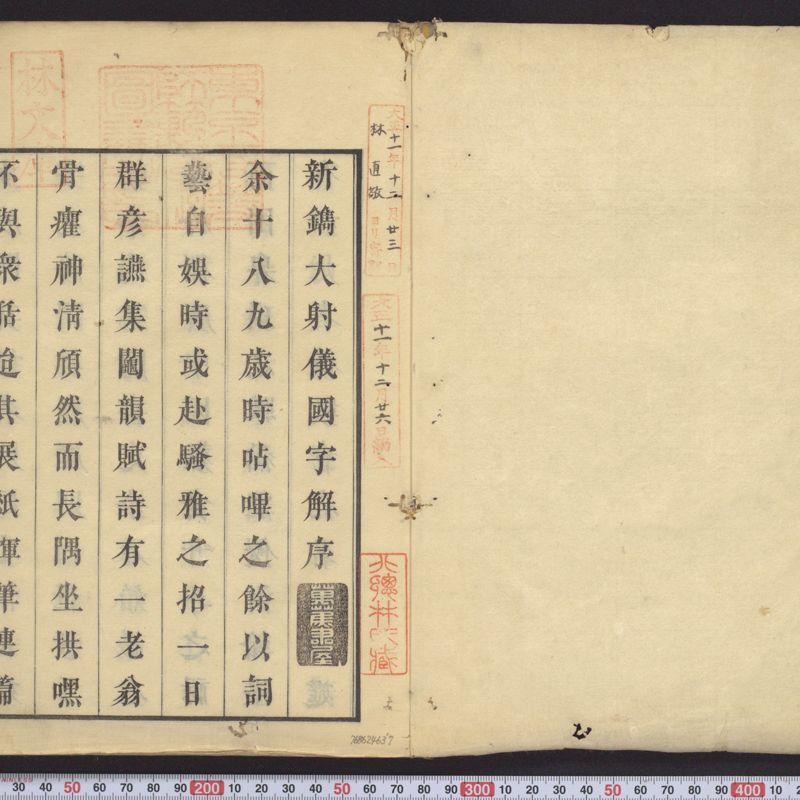 新鐫大射儀國字解序
余十八九歳時呫嗶之餘以詞
藝自娯時或赴騷雅之招一日
群彦讌集鬮韻賦詩有一老翁
骨癯神淸頎然而長隅坐拱嘿
不與衆話迨其展紙揮筆連篇
大正十一年十二月廿三日
林直敬
大正十一年十二月廿六日
林文
768624637
30 40 50 60 70 80 90 200 10 20 30 40 50 60 70 80 90 300 10 20 30 40 50 60 70 80 90 400 10 20